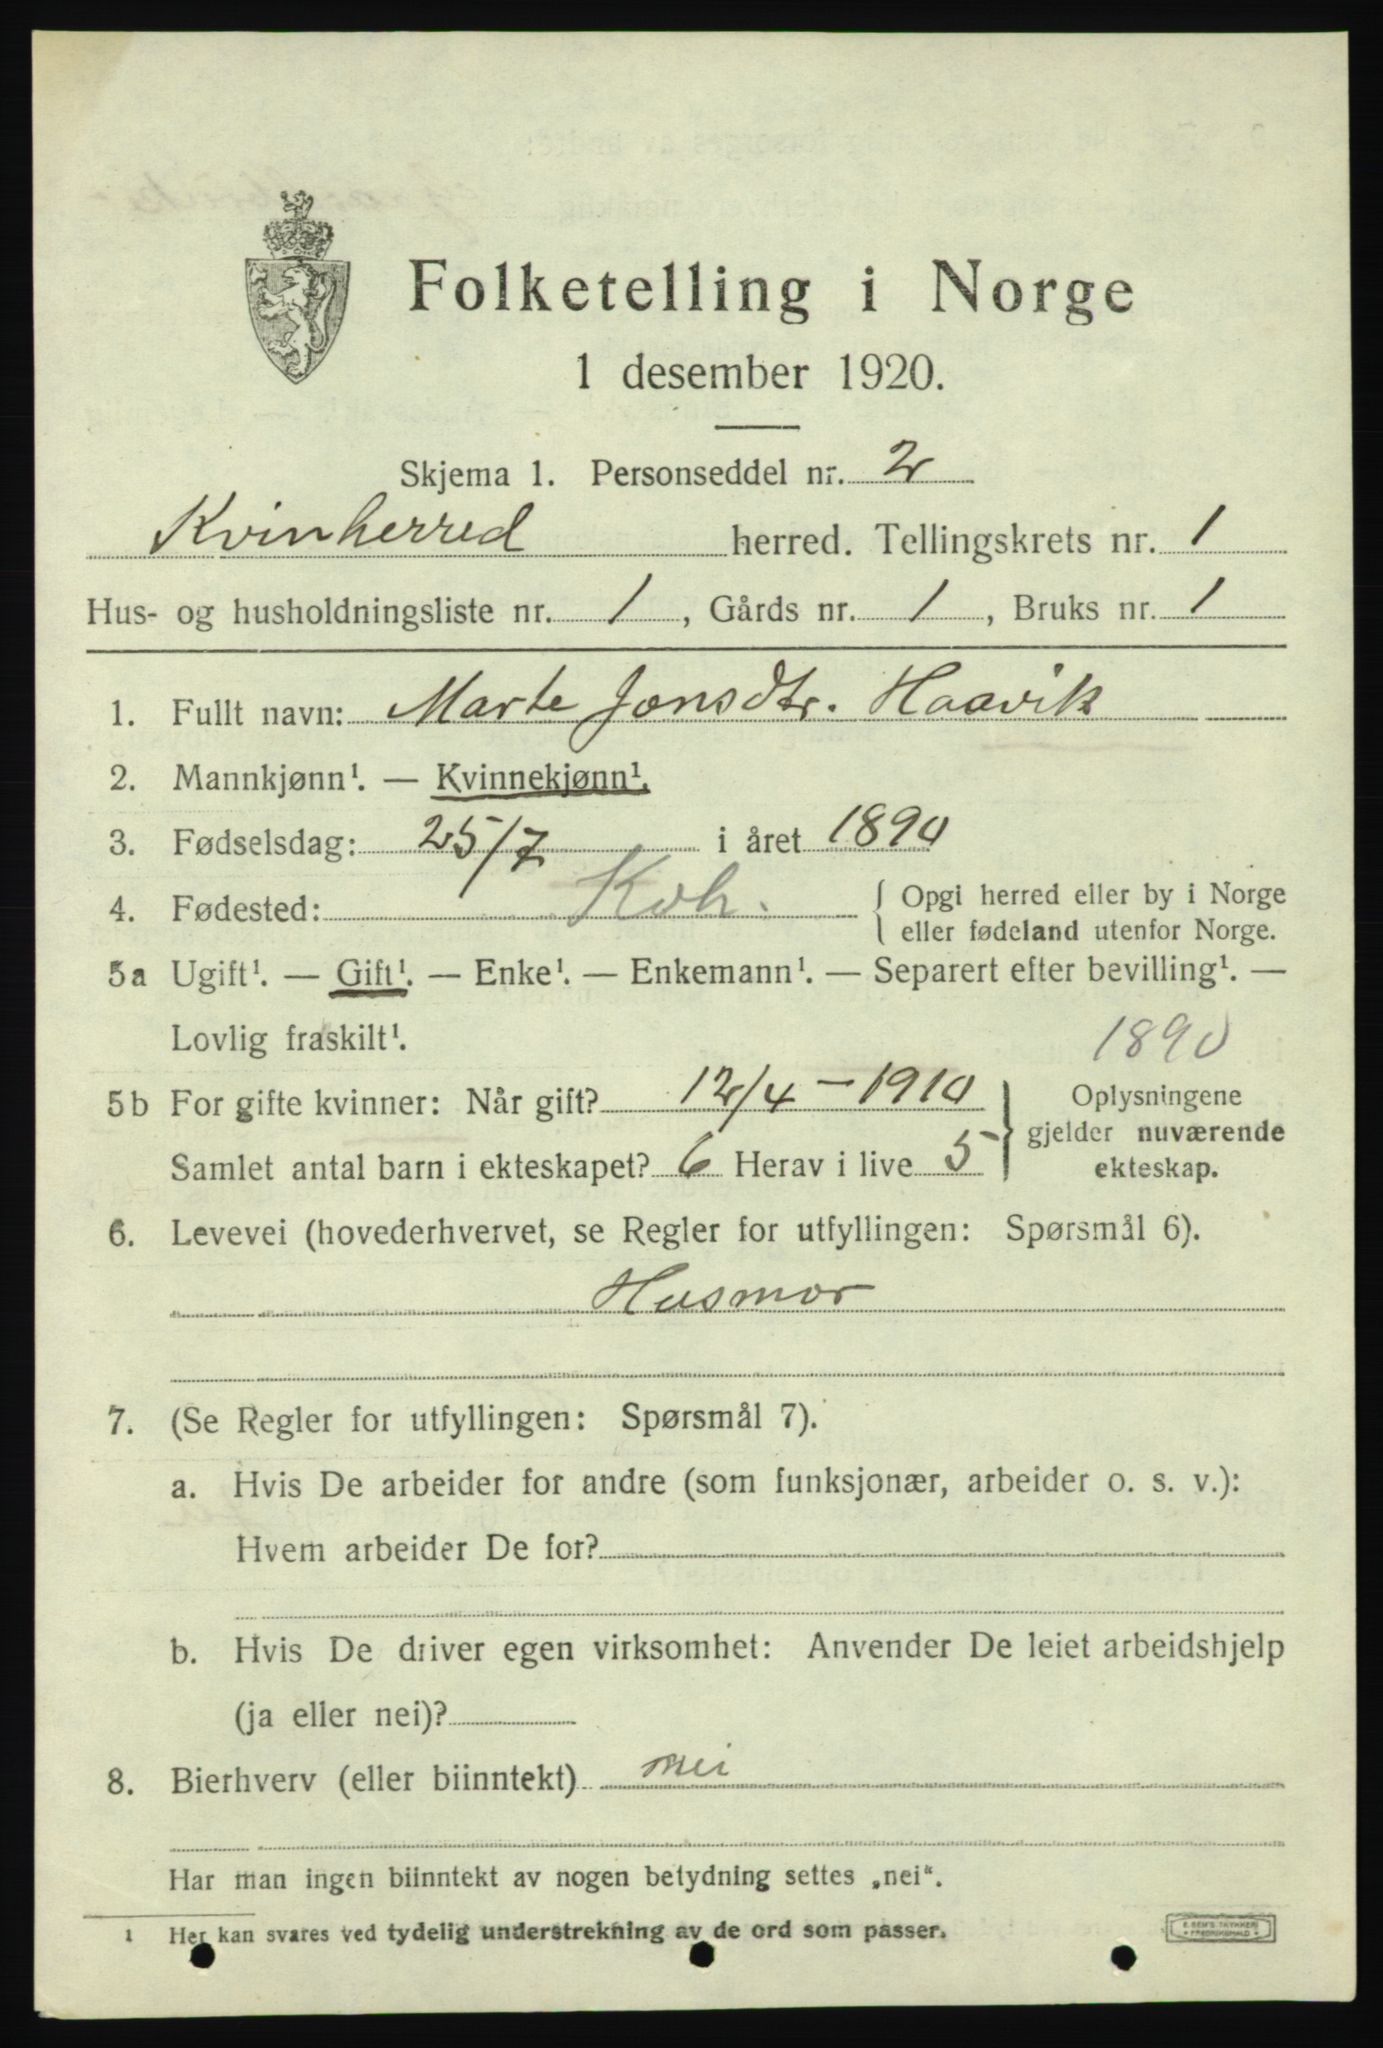 Folketelling i Norge
1 desember 1920.
Skjema 1. Personseddel nr. 2
Kvinherred herred. Tellingskrets nr. 1
Hus- og husholdningsliste nr. 1, Gårds nr. 1, Bruks nr. 1
1. Fullt navn: Marte Jonsdtr. Haavik
2. Mannkjønn¹. — Kvinnekjønn¹.
3. Fødselsdag: 25/7 i året 1890
4. Fødested: Kvh. { Opgi herred eller by i Norge
eller fødeland utenfor Norge.
5a Ugift¹. — Gift¹. — Enke¹. — Enkemann¹. — Separert efter bevilling¹. —
Lovlig fraskilt¹.
1890
5b For gifte kvinner: Når gift? 12/4 - 1910
Samlet antal barn i ekteskapet? 6 Herav i live 5
} Oplysningene
gjelder nuværende
ekteskap.
6. Levevei (hovederhvervet, se Regler for utfyllingen: Spørsmål 6).
Husmor
7. (Se Regler for utfyllingen: Spørsmål 7).
a. Hvis De arbeider for andre (som funksjonær, arbeider o. s. v.):
Hvem arbeider De for?
b. Hvis De driver egen virksomhet: Anvender De leiet arbeidshjelp
(ja eller nei)?
8. Bierhverv (eller biinntekt) nei
Har man ingen biinntekt av nogen betydning settes „nei“.
1 Her kan svares ved tydelig understrekning av de ord som passer.
E. SEM'S TRYKKERI
FREDRIKSHALD